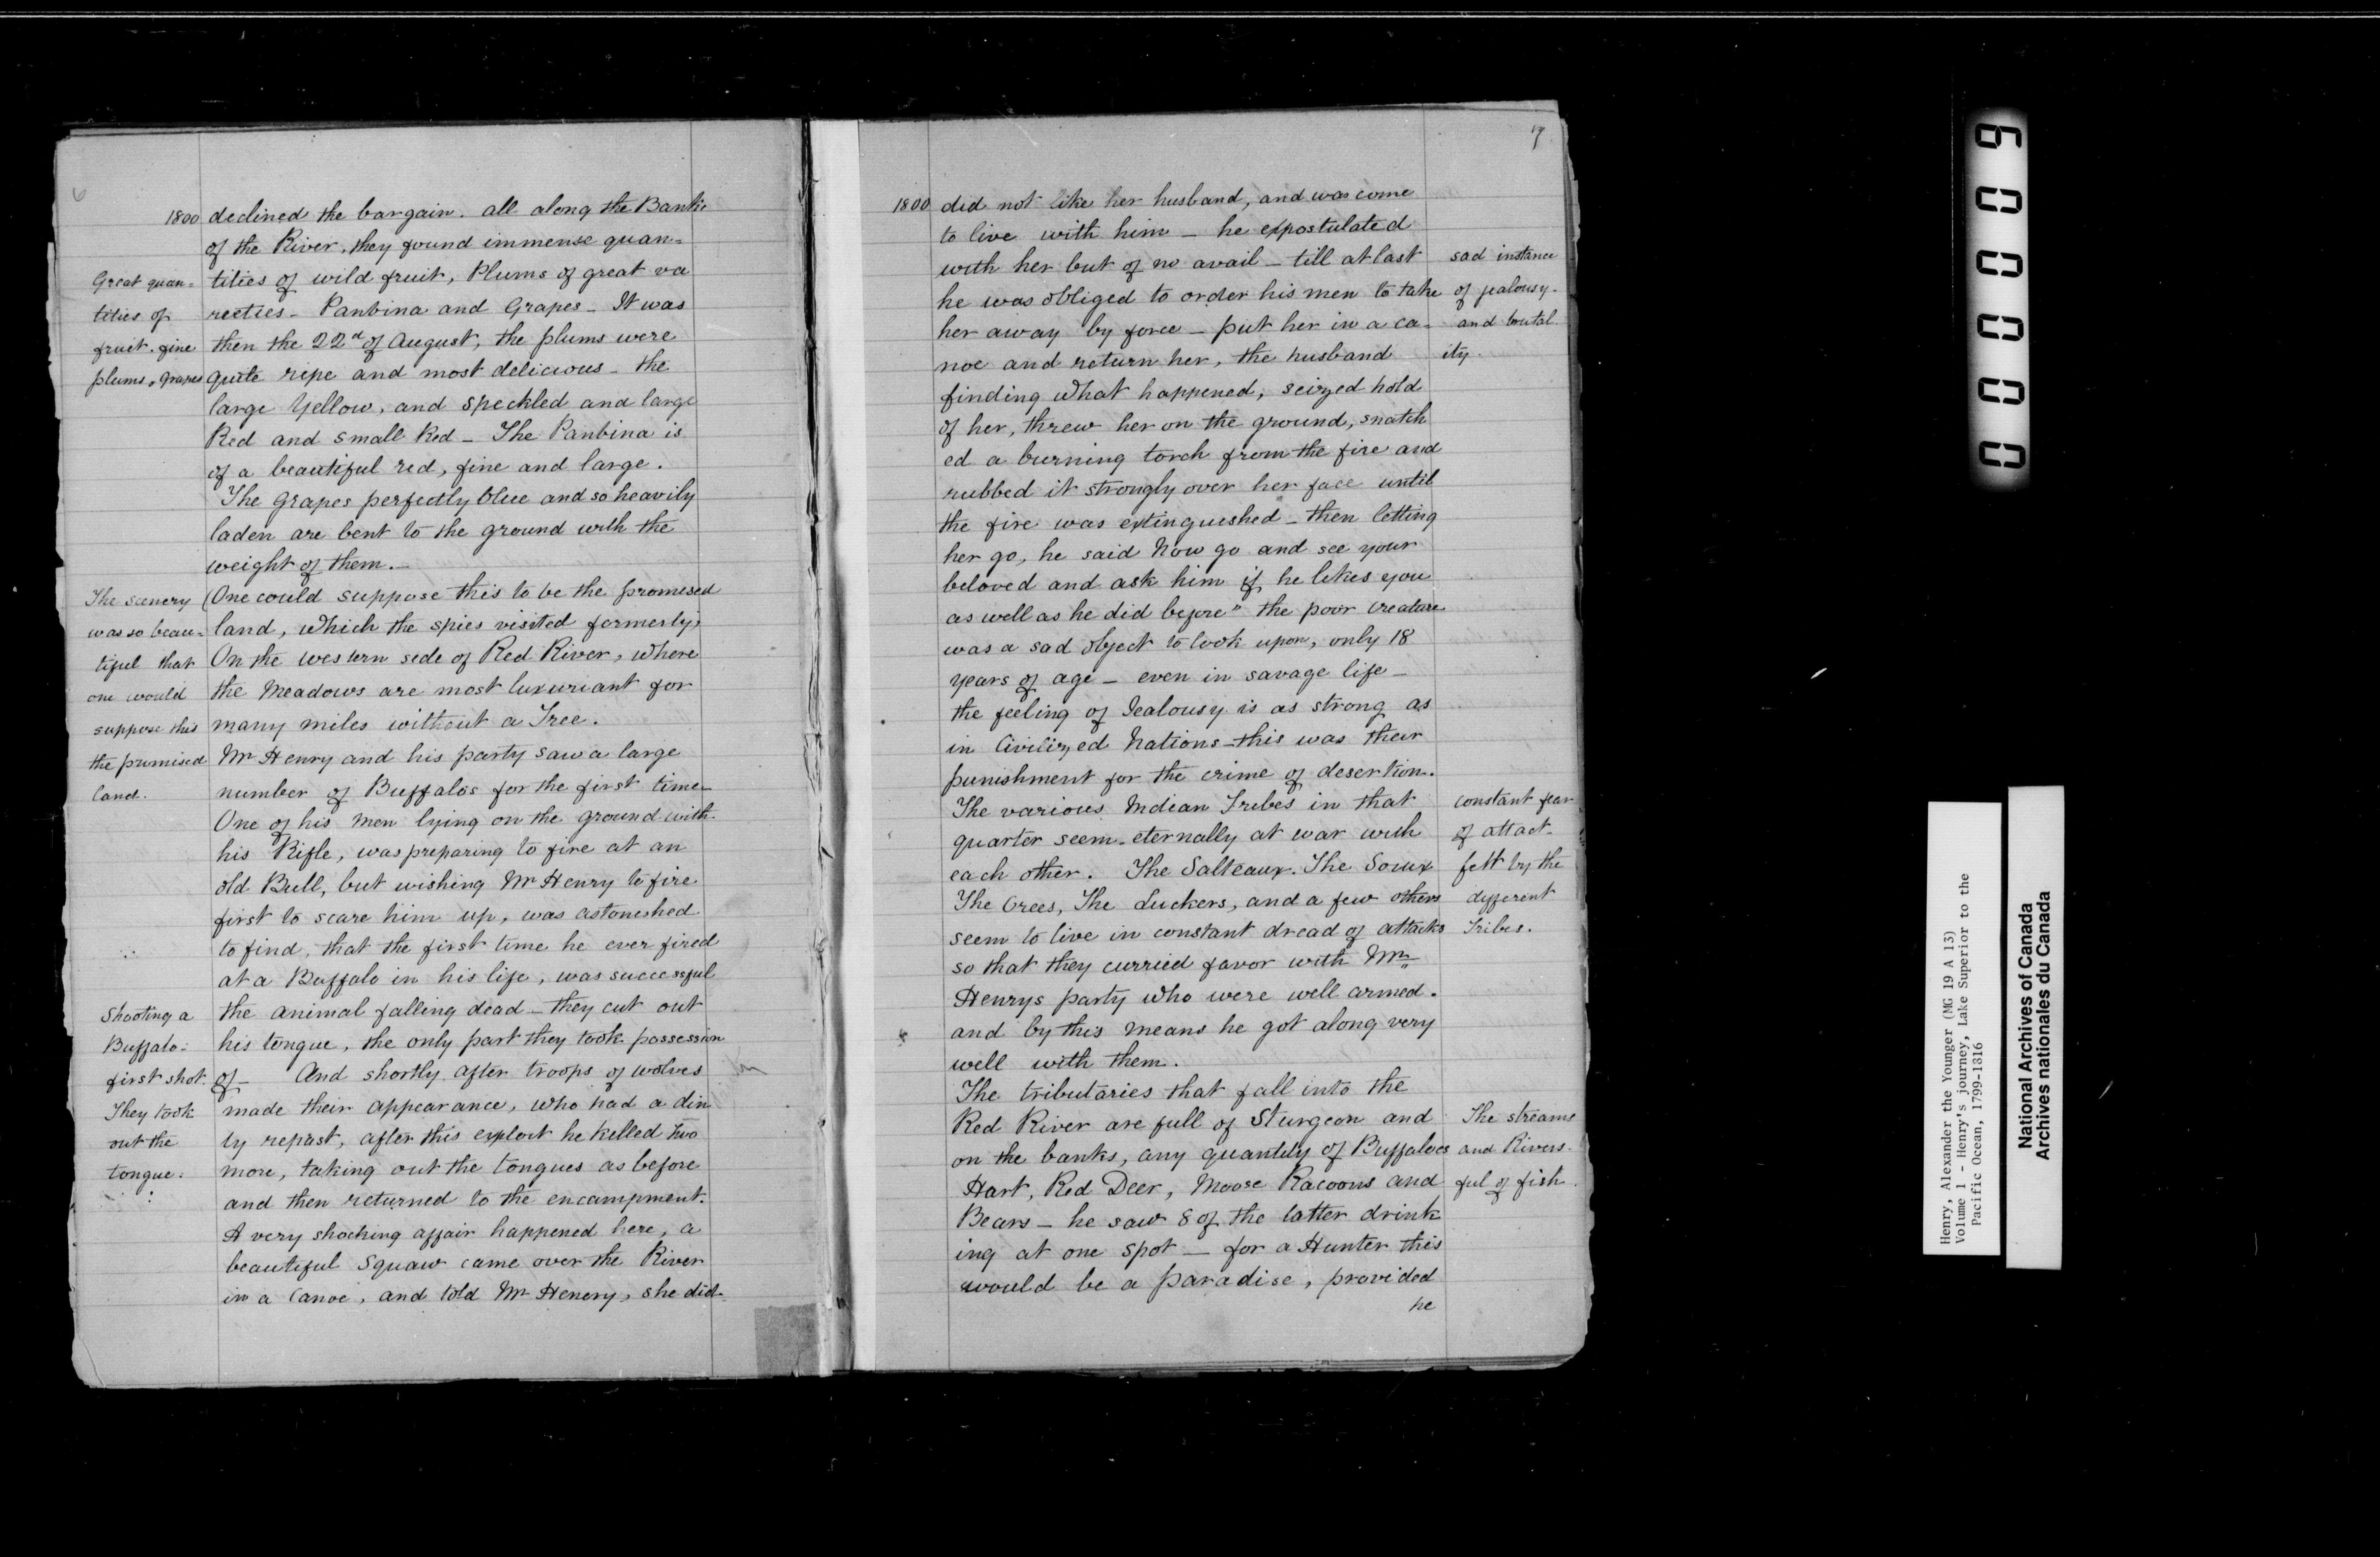 6
1800 declined the bargain. all along the Banks
of the River, they found immense quan=
tities of wild fruit, Plums of great va
rieties - Panbina and Grapes - It was
then the 22nd of August, the plums were
quite ripe and most delicious - the
large Yellow, and speckled and large
Red and small Red - The Panbina is
of a beautiful red, fine and large.
The grapes perfectly blue and so heavily
laden are bent to the ground with the
weight of them. -
(One could suppose this to be the promised
land, which the spies visited formerly,
On the western side of Red River, where
the Meadows are most luxuriant for
many miles without a Tree.
Mr Henry and his party saw a large
number of Buffalos for the first time -
One of his men lying on the ground with
his Rifle, was preparing to fire at an
old Bull, but wishing Mr Henry to fire
first to scare him up, was astonished
to find, that the first time he ever fired
at a Buffalo in his life, was successful
the animal falling dead - they cut out
his tongue, the only part they took possession
of - And shortly after troops of wolves
made their appearance, who had a din
ly repast, after this exploit he killed two
more, taking out the tongues as before
and then returned to the encampment.
A very shocking affair happened here, a
beautiful Squaw came over the River
in a Canoe, and told Mr Henery, she did
Great quan=
tities of
fruit. fine
plums, grapes
The scenery
was so beau=
tiful that
one would
suppose this
the promised
land.
Shooting a
Buffalo -
first shot.
They took
out the
tongue.
7
1800 did not like her husband, and was come
to live with him - he expostulated
with her but of no avail - till at last
he was obliged to order his men to take
her away by force - put her in a ca=
noe and return her, the husband
finding what happened, seized hold
of her, threw her on the ground, snatch
ed a burning torch from the fire and
rubbed it strongly over her face until
the fire was extinguished - then letting
her go, he said Now go and see your
beloved and ask him if he likes you
as well as he did before" the poor creature
was a sad object to look upon, only 18
years of age - even in savage life -
the feeling of Jealousy is as strong as
in Civilized Nations - this was their
punishment for the crime of desertion.
The various Indian Tribes in that
quarter seem eternally at war with
each other. The Salteaux. The Soiux
The Crees, The Suckers, and a few others
seem to live in constant dread of attacks
so that they curried favor with Mr
Henrys party who were well armed.
and by this means he got along very
well with them.
The tributaries that fall into the
Red River are full of Sturgeon and
on the banks, any quantity of Buffaloes
Hart, Red Deer, Moose Racoons and
Bears - he saw 8 of the latter drink
ing at one spot - for a Hunter this
would be a paradise, provided
he
sad instance
of jealousy -
and brutal
ity.
constant fear
of attact -
felt by the
different
Tribes.
The streams
and Rivers
ful of fish.
000009
Henry, Alexander the Younger (MG 19 A 13)
Volume 1 - Henry's journey, Lake Superior to the
Pacific Ocean, 1799-1816
National Archives of Canada
Archives nationales du Canada